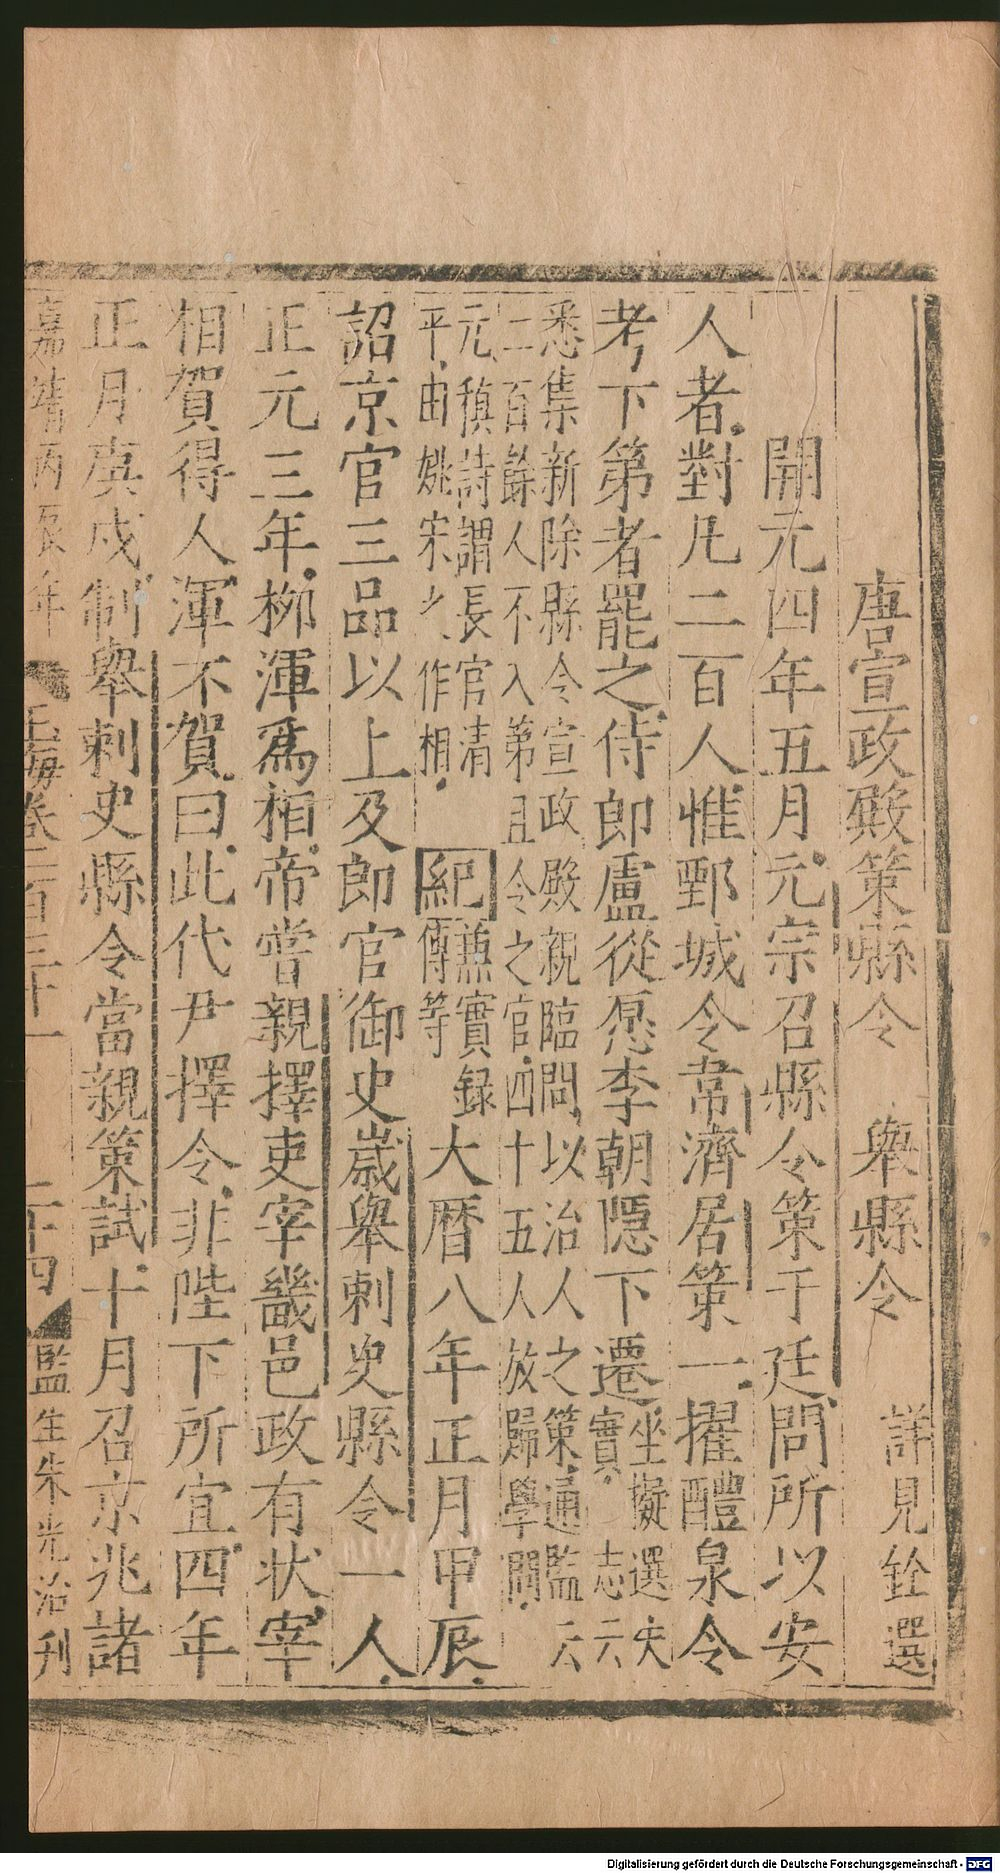 唐宣政殿策縣令　舉縣令　詳見銓選
開元四年五月元宗召縣令策于廷問所以安
人者對凡二百人惟鄄城令韋濟居策一擢醴泉令
考下第者罷之侍郎盧從愿李朝隱下遷坐擬選失
實 志云
悉集新除縣令宣政殿親臨問以治人之策通監云
二百餘人不入第且令之官四十五人放歸學問
元稹詩謂長官清
平由姚宋之作相 紀兼實録
傳等 大曆八年正月甲辰
詔京官三品以上及郎官御史歲舉刺史縣令一人
正元三年栁渾爲相帝嘗親擇吏宰畿邑政有状宰
相賀得人渾不賀曰此代尹擇令非陛下所宜四年
正月庚戌制舉刺史縣令當親策試十月召京兆諸
嘉靖丙辰年 玉海卷一百三十一 二十四 監生朱光治刊
Digitalisierung gefördert durch die Deutsche Forschungsgemeinschaft - DFG